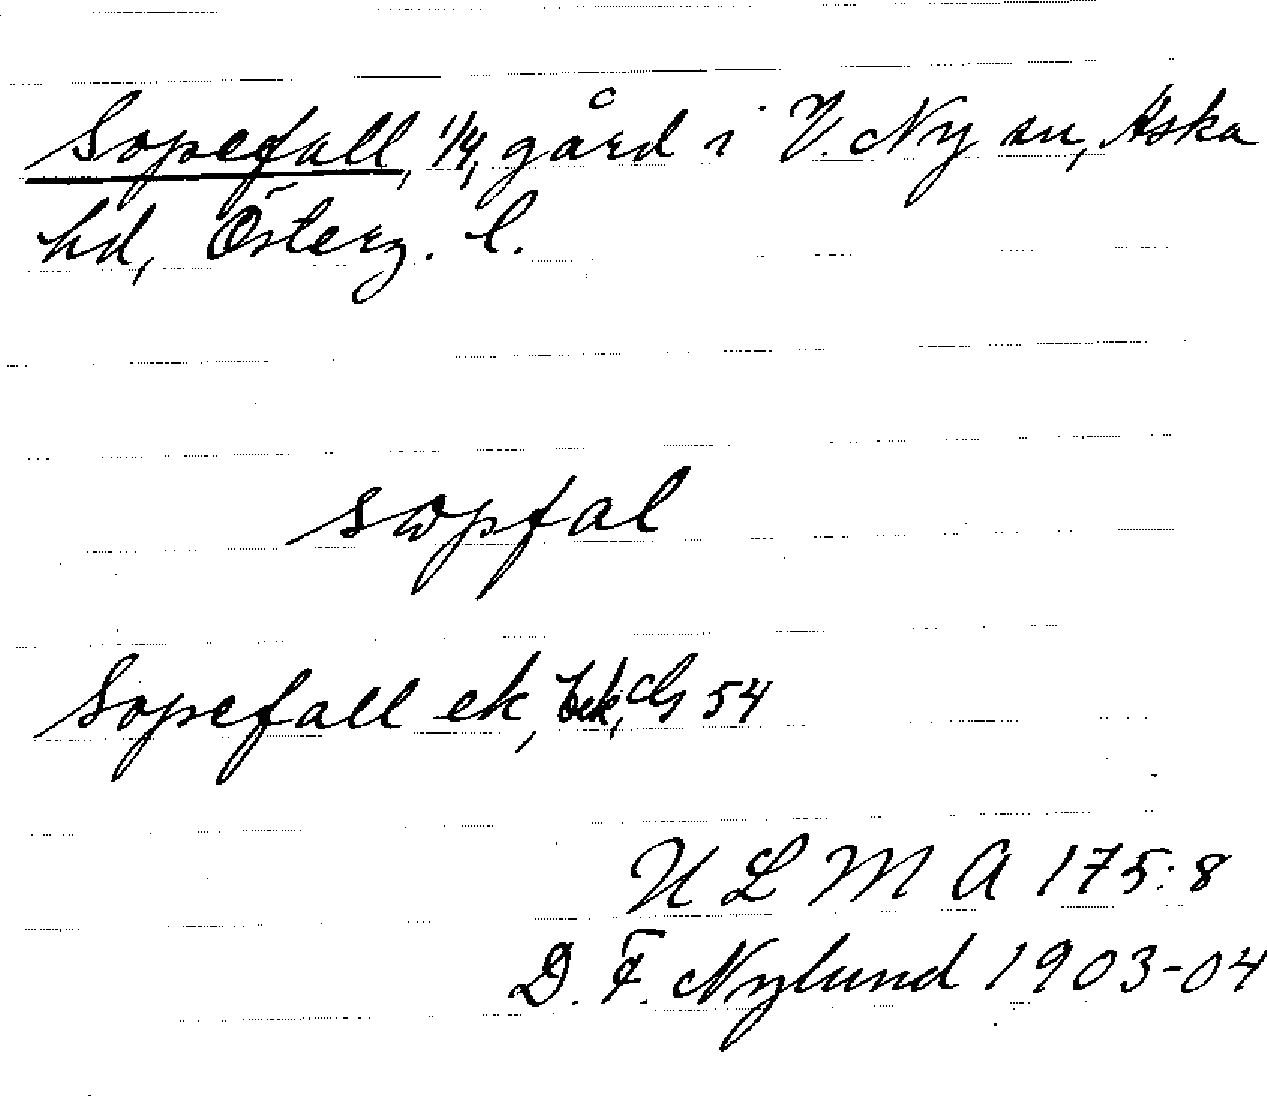 Sopefall, 1/4, gård i V. Ny sn, Aska
hd, Österg. l.
sωpfal
Sopefall ek, 54
U L M A 175:8
D. F. Nylund 1903-04